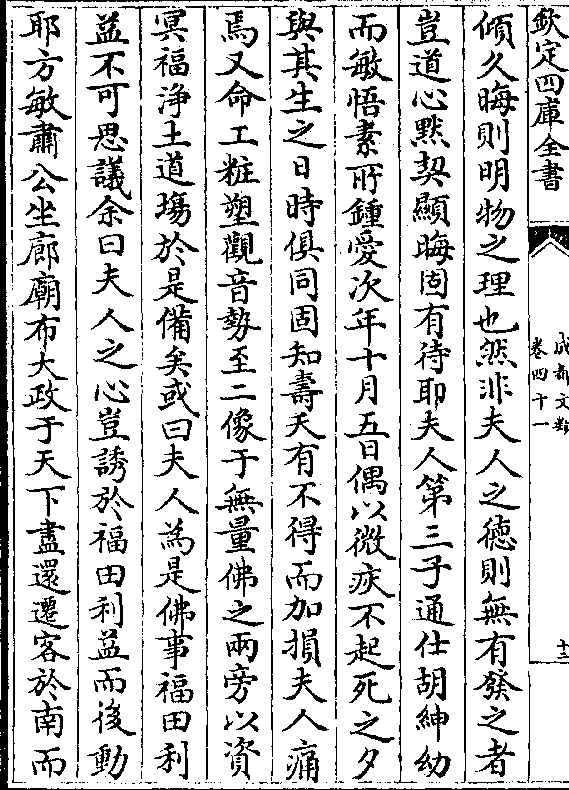 欽定四庫全書
成都文類
卷四十一
十三
傾久晦則明物之理也然非夫人之德則無有發之者
豈道心黙契顯晦固有待耶夫人第三子通仕胡紳幼
而敏悟素所鍾愛次年十月五日偶以微疾不起死之夕
與其生之日時俱同固知壽夭有不得而加損夫人痛
焉又命工粧塑觀音勢至二像于無量佛之兩旁以資
冥福浄土道場於是備矣或曰夫人為是佛事福田利
益不可思議余曰夫人之心豈誘於福田利益而後動
耶方敏肅公坐廊廟布大政于天下盡還遷客於南而